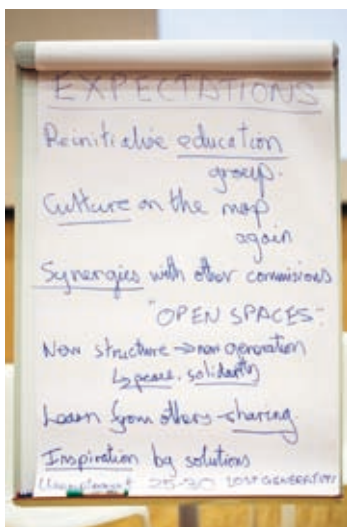 EXPECTATIONS
Reinitialise education
group.
Culture on the map
again
Synergies with other commisions
"OPEN SPACES"
New structure → new generation
↳ peace, solidarity
Learn from others - sharing.
Inspiration by solutions
25-30 LOST GENERATION